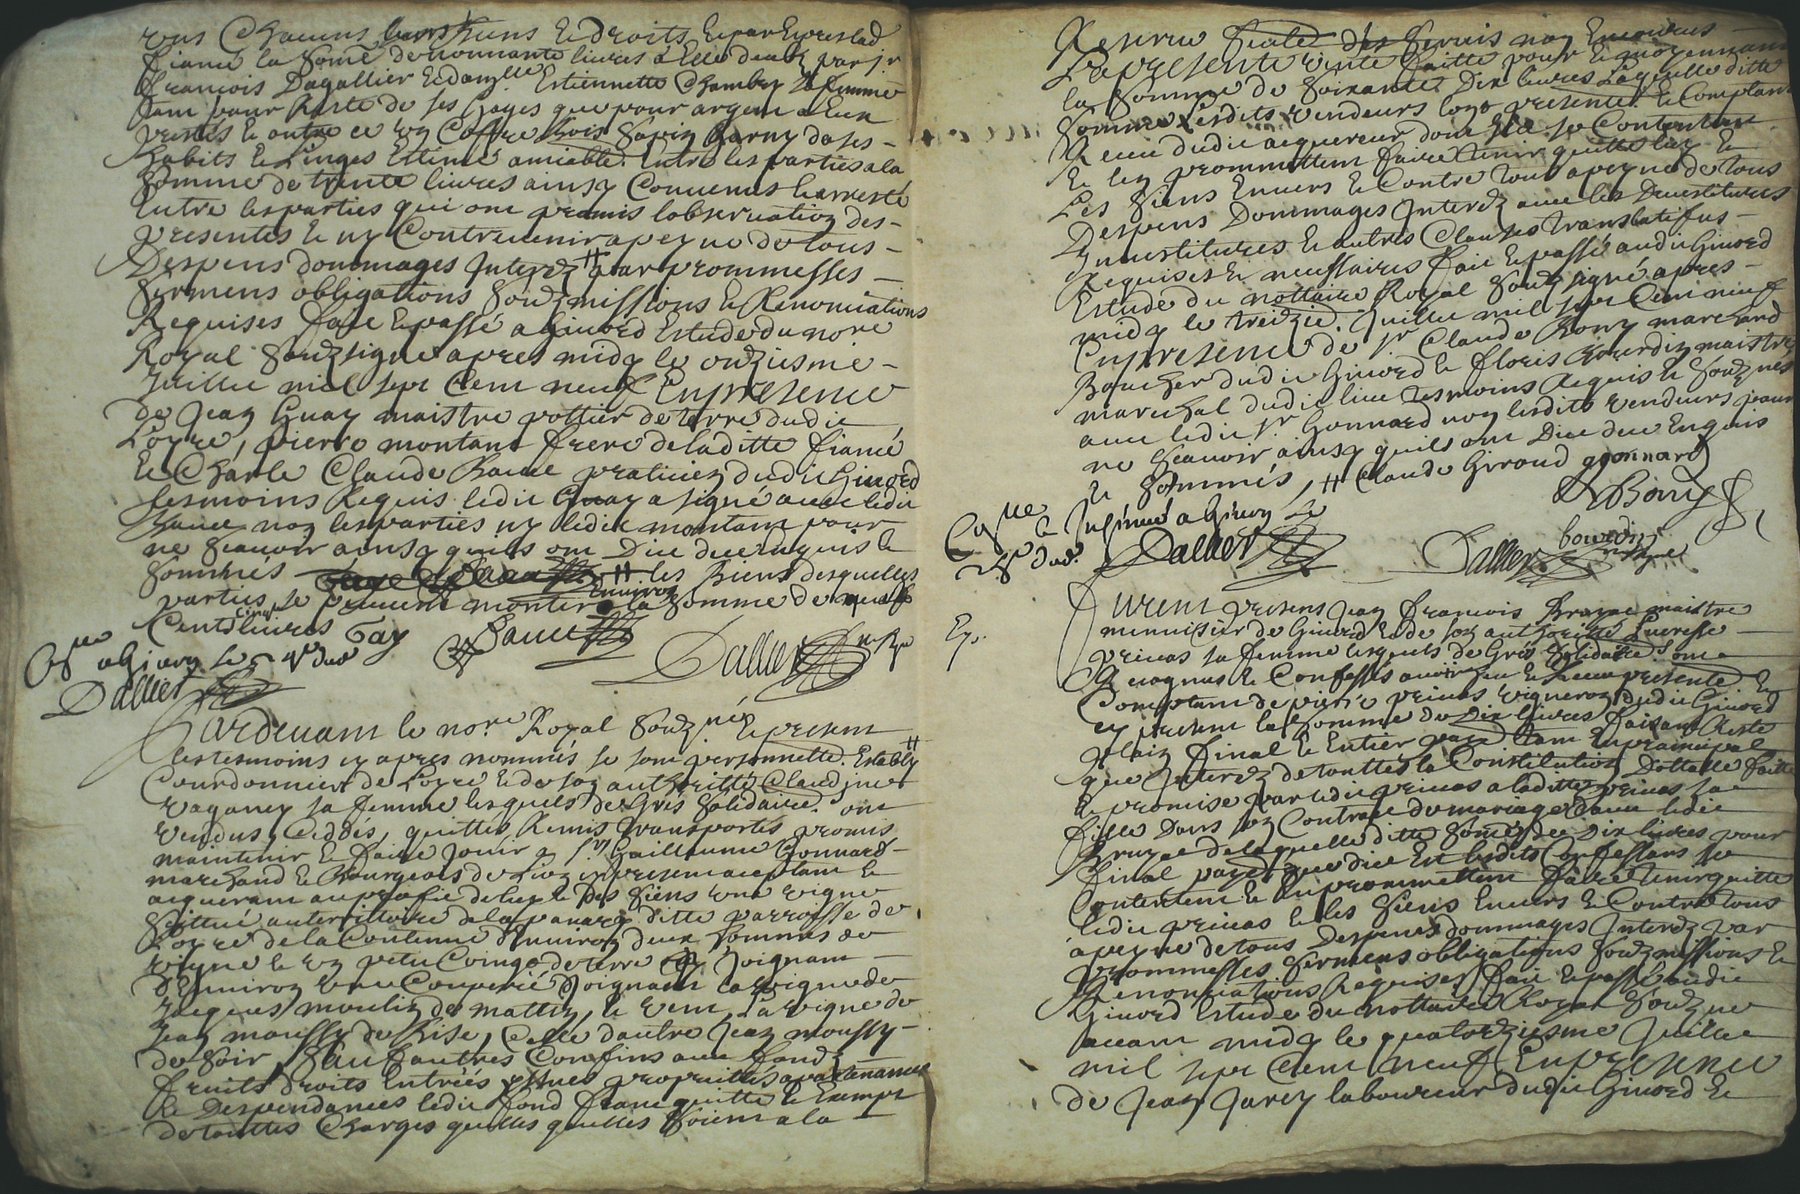 uns Chacuns leurs biens & droits, & par Expres lad
fiancé la Some de nonnante livres à Elle deubz par sr
françois Dagallier & damlle Estiennette Chambry sa femme
tant pour Reste de ses Gages que pour argent a Eux
prestés & outre ce un Coffre bois sapin Garny de ses
habits & Linges Estimé amiablet Entre les parties a la
Somme de trente livres ainsy Convenus & arresté
Entre les parties qui ont promis lobservation des
presentes & ny Contrevenir a peyne de tous
Despens dommages Interez # par prommesses
sermens obligations soubzmissions & Renonciations
Requises fait & passé a Givord Estude du nore
Royal soubzsigné apres midy le onziesme
Juillet mil sept Cent neuf En presence
de Jean Guay maistre pottier de terre dudit
Loyre, pierre montant frere de laditte fiancé
& Charle Claude Bane praticien dudit Givord
tesmoins Requis ledit Guay a signé avec ledit
Bane non les parties ny ledit montant pour
ne scavoir ainsy quils ont Dit deue Enquis &
sommés # les Biens desquelles
parties se peuvent monter Environ a la Somme de
Cents Cinq livres Gay
Bane
Dallier nore Ral
Con lle a Givors le
Dallier
Pardevant le nore Royal soubzné & presents
les tesmoins cy apres nommés se sont personnelle. Estably #
Courdonnier de Loyre & de son authoritté Claudine
vaganey sa femme lesquels de Grés Solidaire. ont
vendus, Ceddés, quittés Remis transportés promis
maintenir & faire Jouir a sr Guillaume Gonnard
marchand & Bourgeois de Lion cy present acceptant &
aquerant au proffit de luy & des siens une vigne
scittué au territoire de la ditte parroisse de
Loyre de la Contenue d'Environ deux hommés de
vigne & un petit Coing de terre Joignant
d'Environ une Coupeé Joignant la vigne de
moulin de matin, & vent, la vigne de
Jean moussy de Bise, Celle dautre Jean moussy
de soir, sauf autres Confins avec fondz
fruits droits Entrées yssues proprietés apartenances
& Despendances ledit fond franc quitte & Exempt
de touttes Charges quelles quelles soient a la
Reserve des servis non Encourus
La presente vente faitte pour & moyennant
la Somme de Soixante Dix livres Laquelle ditte
Somme Lesdits vendeurs Long presentemt & Comptant
Receu dudit acquereur dont Ils se Contentent
& len prommettent faire tenir quitte luy &
Les siens Envers & Contre tous a peyne de tous
Despens Dommages Interez avec les Devestitures
Investitures & autres Clauses translatifves
Requises & necessaires fait & passé audit Givord
Estude du nottaire Royal soubzsigné apres
midy le treizie. Juillet mil sept Cent neuf
En presence de sr Claude Bony marchand
Boucher dudit Givord & floris Bourdin maistre
marechal dudit lieu tesmoins Requis & soubznés
avec ledit sr Gonnard non lesdits vendeurs pour
ne scavoir ainsy quils ont Dit deue Enquis
& sommés, # Claude Giroud ggonnard
Bony
bourdin
Con lle & Insinué a Givors le
Dallier
Dallier nore Ral
Ex.
Furent presens Jean françois Bruyas maistre
menuisier de Givord & de son authoritté Lucresse
privas sa femme lesquels de Grés Solidaire. ont
Recognus & Confessés avoir heu & Receu presentemt &
Comptant de pierre privas vigneron dudit Givord
cy present la Somme de Dix livres faisant Reste
plain final & Entier paymt tant En principal
que Interez de touttes la Constitution Dottalle faitte
& promise par ledit privas a laditte privas sa
fille Dans son Contract de mariage avec ledit
Bruyas de laquelle ditte Some de Dix livres pour
final paymt que dit Est lesdits Confessans se
Contentent & En prommettent faire tenir quitte
ledit privas & les siens Envers & Contre tous
a peyne de tous Despens dommages Interez par
prommesses sermens obligations soubzmissions &
Renonciations Requises fait & passé audit
Givord Estude du nottaire Royal soubzné
avant midy le quatorziesme Juillet
mil sept Cent neuf En presence
de Jean Jarey laboureur dudit Givord &